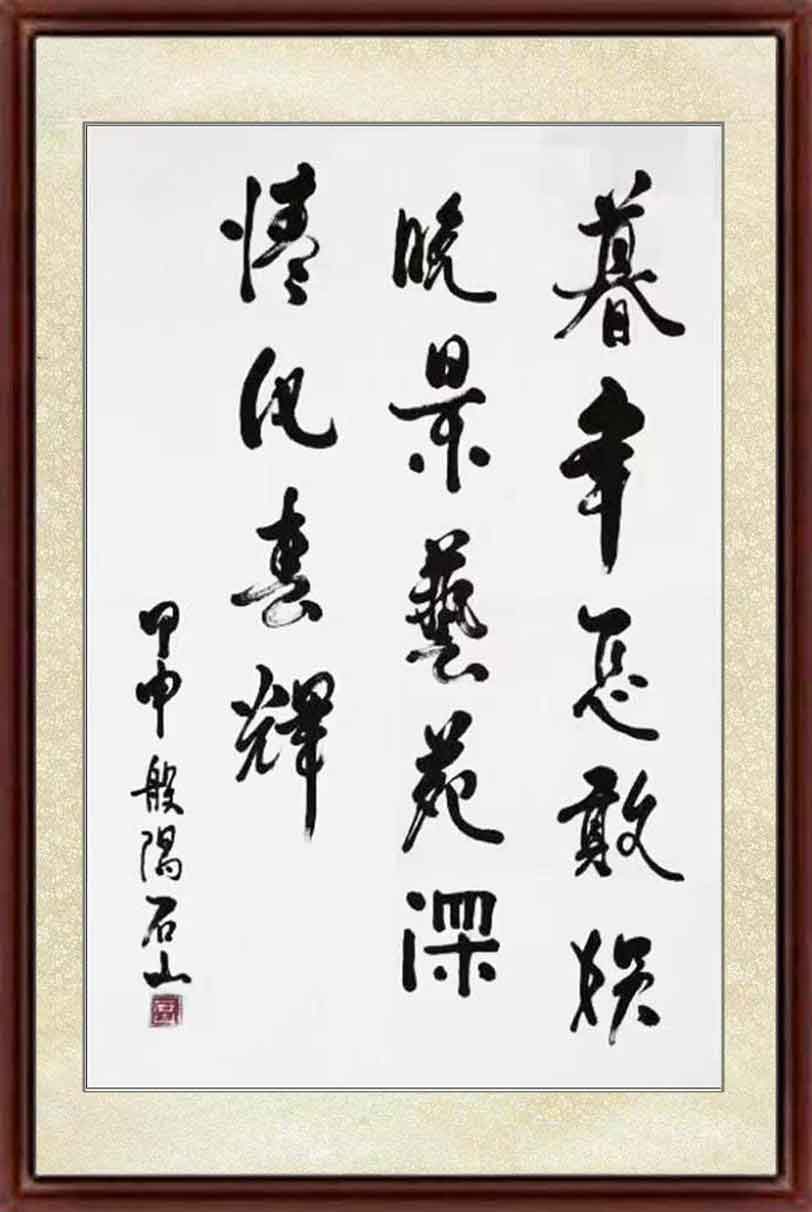 暮年怎敢娱
晚景藝苑深
情化春輝
甲申般陽石山